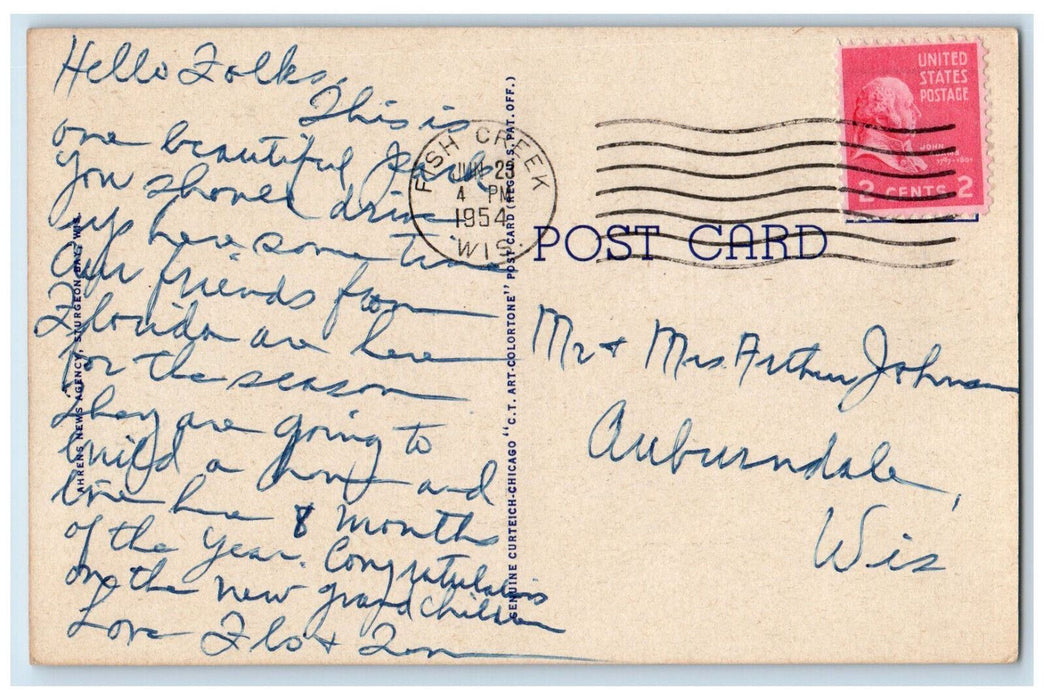 Hello Folks,
This is
one beautiful Park
You should drive
up here some time
Our friends from
Florida are here
for the season
They are going to
build a home and
live here 8 months
of the year. Congratulations
on the new grandchildren
Love Flo &
AHRENS NEWS AGENCY, STURGEON BAY, WIS.
GENUINE CURTEICH-CHICAGO "C.T. ART-COLORTONE" POST CARD (REG. U.S. PAT. OFF.)
FISH CREEK
JUN 23
4 PM
1954
WIS.
UNITED
STATES
POSTAGE
JOHN
ADAMS
1797-1801
2 CENTS 2
POST CARD
Mr & Mrs Arthur Johnson
Auburndale,
Wis